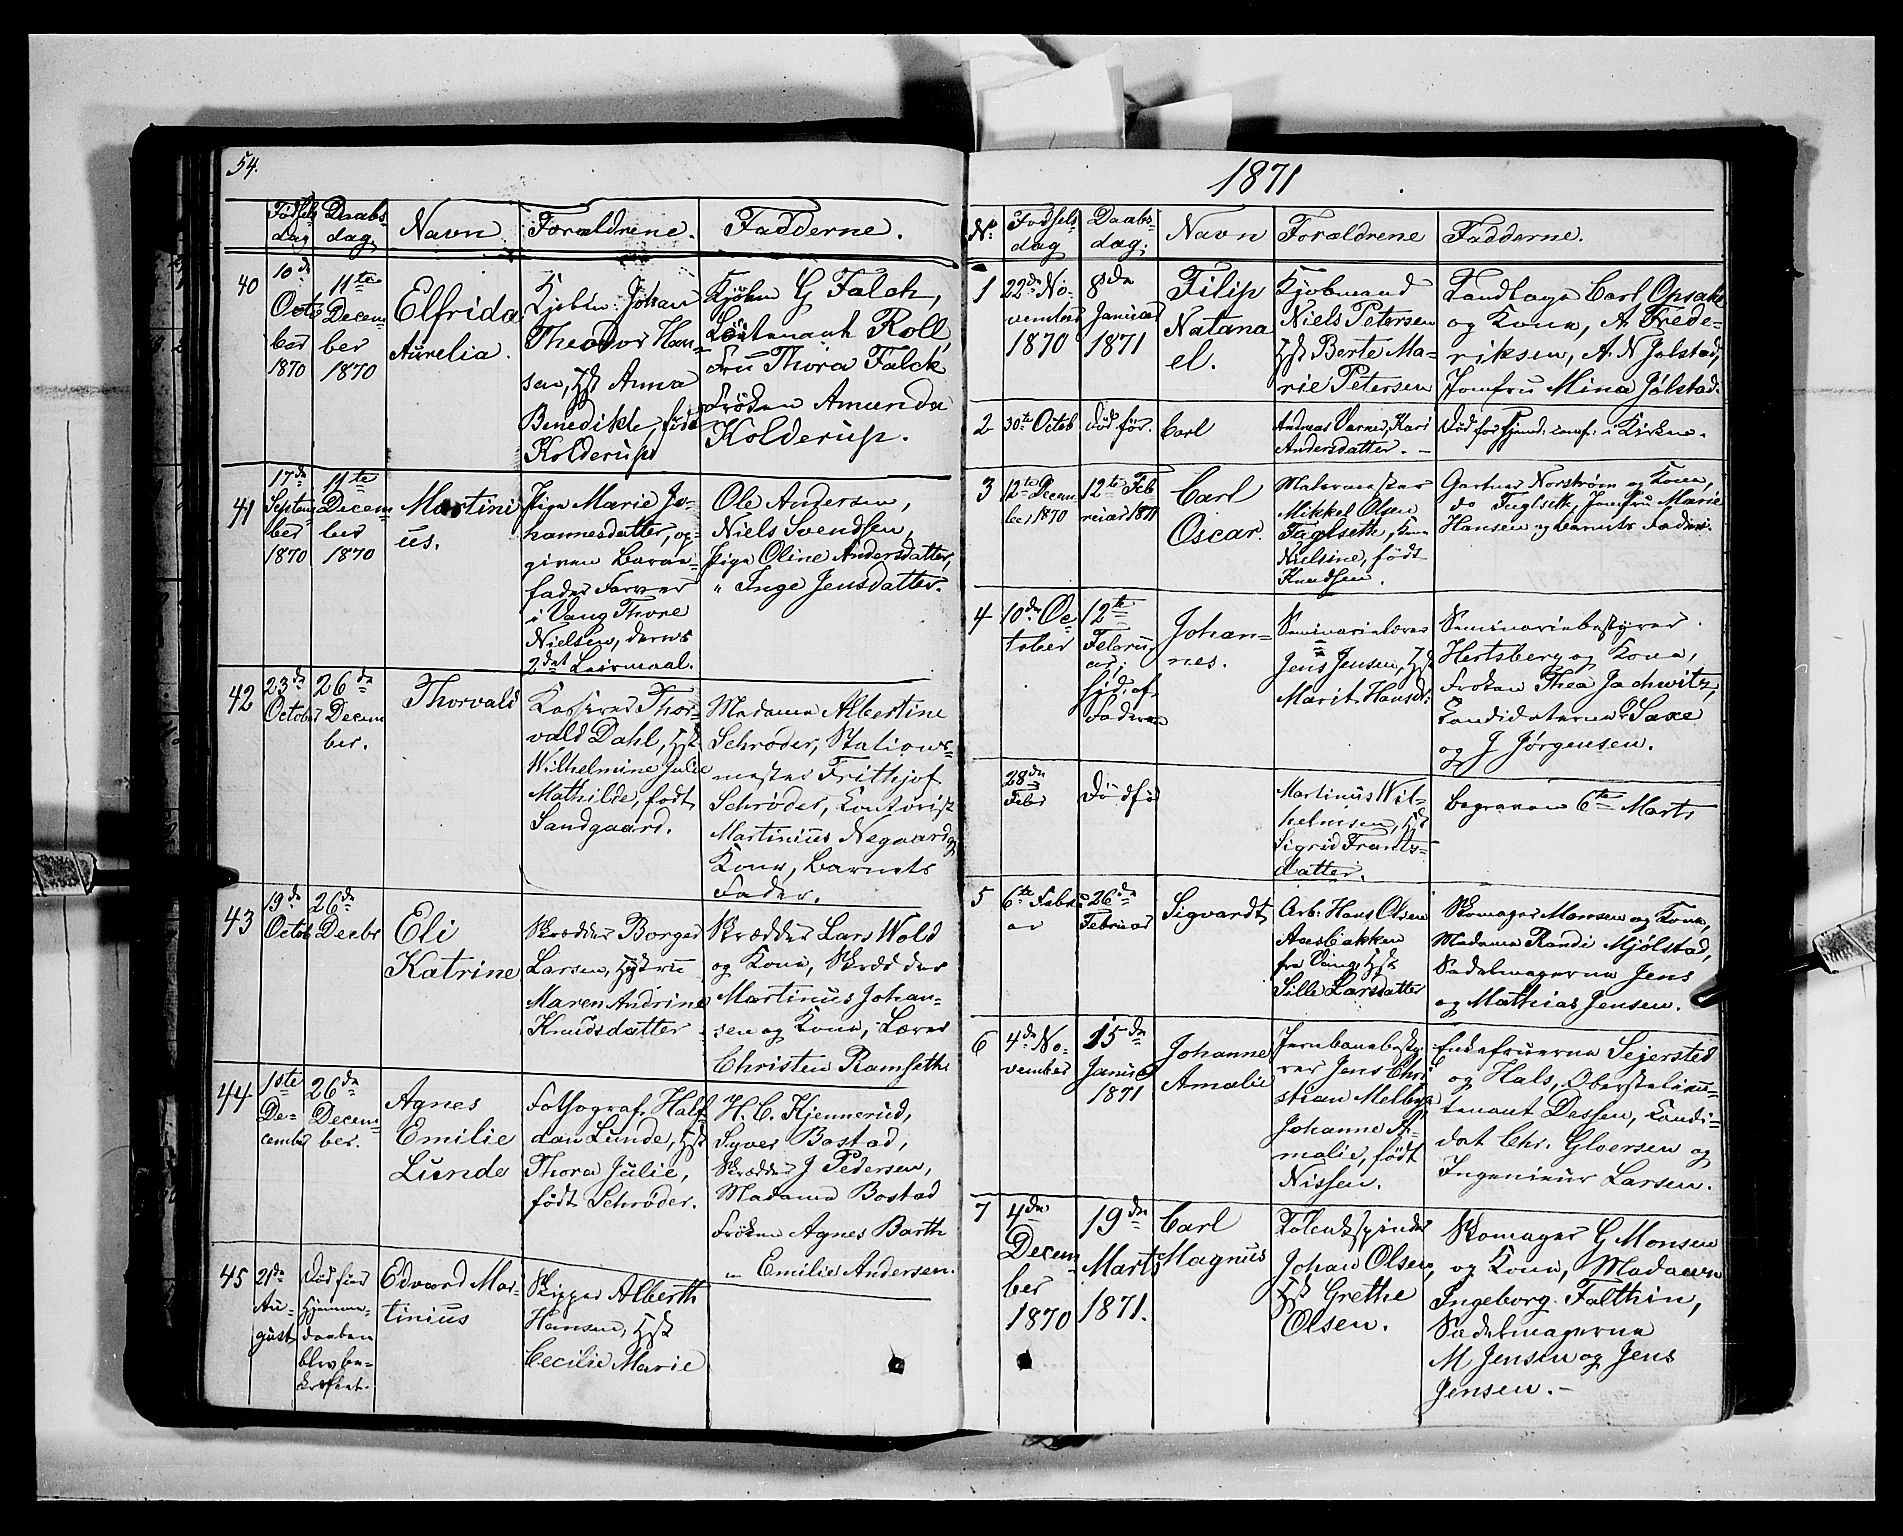 54.
Fødsels dag
Daabs dag
Navn
Forældrene.
Fadderne.
40
10de
Octo
ber
1870
11te
Decem
ber
1870
Elfrida
Aurelia.
Kjøbm: Johan
Theodor Han-
sen, Hst Anna
Benedikte, født
Kolderup
Kjøbm G Falck,
Løitenant Roll,
Fru Thora Falck
Frøken Amunda
Kolderup.
41
17de
Septem
ber
1870
11te
Decem
ber
1870
Martini
us.
Pige Marie Jo-
hannesdatter, op-
given Barne-
fader Farver
i Vang Thore
Nielsen, deres
2det Leiermaal.
Ole Andersen,
Niels Svendsen,
Pige Oline Andersdatter,
" Inge Jensdatter.
42
23de
October
26de
Decem
ber.
Thorvald
Kasserer Thor-
vald Dahl, Hst
Wilhelmine Julie
Mathilde, født
Sandgaard.
Madame Albertine
Schrøder, Stations-
mester Frithjof
Schrøder, Kontorist
Martinius Negaard og
Kone, Barnets
Fader.
43
19de
Octob
26de
Decbr
Eli
Katrine
Skrædder Borger
Larsen, Hustru
Maren Andrine
Knudsdatter
Skrædder Lars Wold
og Kone, Skrædder
Martinus Johan-
sen og Kone, Lærer
Christen Ramseth
44
1ste
De-
cember
26de
Decem
ber.
Agnes
Emilie
Lunde
Fotograf Half
dan Lunde, Hst
Thora Julie,
født Schrøder.
H. C. Kjennerud,
Syver Bostad,
Skrædder J Pedersen,
Madame Bostad
Frøken Agnes Barth
" Emilie Andersen.
45
21de
Au-
gust
Død før
Hjemme-
daaben
blev be-
kræftet.
Edvard Mar-
tinius
Skipper Alberth
Hansen, Hst
Cecilie Marie
1871
No
Fødsels dag
Daabs dag.
Navn
Forældrene
Fadderne.
1
22de No-
vember
1870
8de
Januar
1871
Filip
Natana
el.
Kjøbmand
Niels Petersen
Hst Berte Ma-
rie Petersen
Tandlæge Carl Opsahl
og Kone, A Frede-
riksen, A. N Jølstad,
Jomfru Mina Jølstad.
2
30te Octob
død før.
Carl
Andreas Varnes, Kari
Andersdatter. -
Død før Hjemd. conf. i Kirken.
3
12te Decem
ber 1870
12te Feb
reiar 1871
Carl
Oscar.
Malermester
Mikkel Olsen
Faglseth, Kone
Nielsine, født
Knudsen.
Gartner Norstrøm og Kone,
do Fuglseth, Jomfru Marie
Hansen og Barnets Fader.
4
10de Oc
tober
12te
Februar
Hjd. af
Faderen
Johan-
nes.
Seminarielærer
Jens Jensen, Hst
Marit Hansd.
Seminariebestyrer
Hertsberg og Kone,
Frøken Thea Jachwitz,
Kandidaterne Saxe
og J Jørgensen.
28de
Febr
Dødfød
Martinus Wil-
helmsen, Hst
Sigrid Frants-
datter.
begraven 6te Marts
5
6te Febru
ar
26de
Februar
Sigvardt
Arb: Hans Olsen
Aasbakken
fra Vang, Hst
Sille Larsdatter
Skomager Monsen og Kone,
Madame Randi Mjølstad,
Sadelmagerne Jens
og Mathias Jensen.
6
4de No-
vember
15de
Januar
1871
Johanne
Amalie
Jernbanebesty-
rer Jens Chri
stian Melbye
Johanne A-
malie, født
Nissen.
Enkefruerne Sejersted
og Hals, Oberstlieu-
tenant Dessen, Kandi-
dat Chr. Gløersen og
Ingenieur Larsen.
7
4de
Decem-
ber
1870
19de
Marts
1871.
Carl
Magnus
Tobakspinder
Johan Olsen,
Hst Grethe
Olsen.
Skomager G Monsen
og Kone, Madamen
Ingeborg Falthin,
Sadelmagerne
M Jensen og Jens
Jensen. -